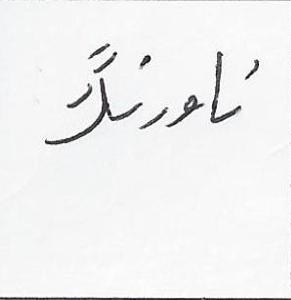 ناورنگ